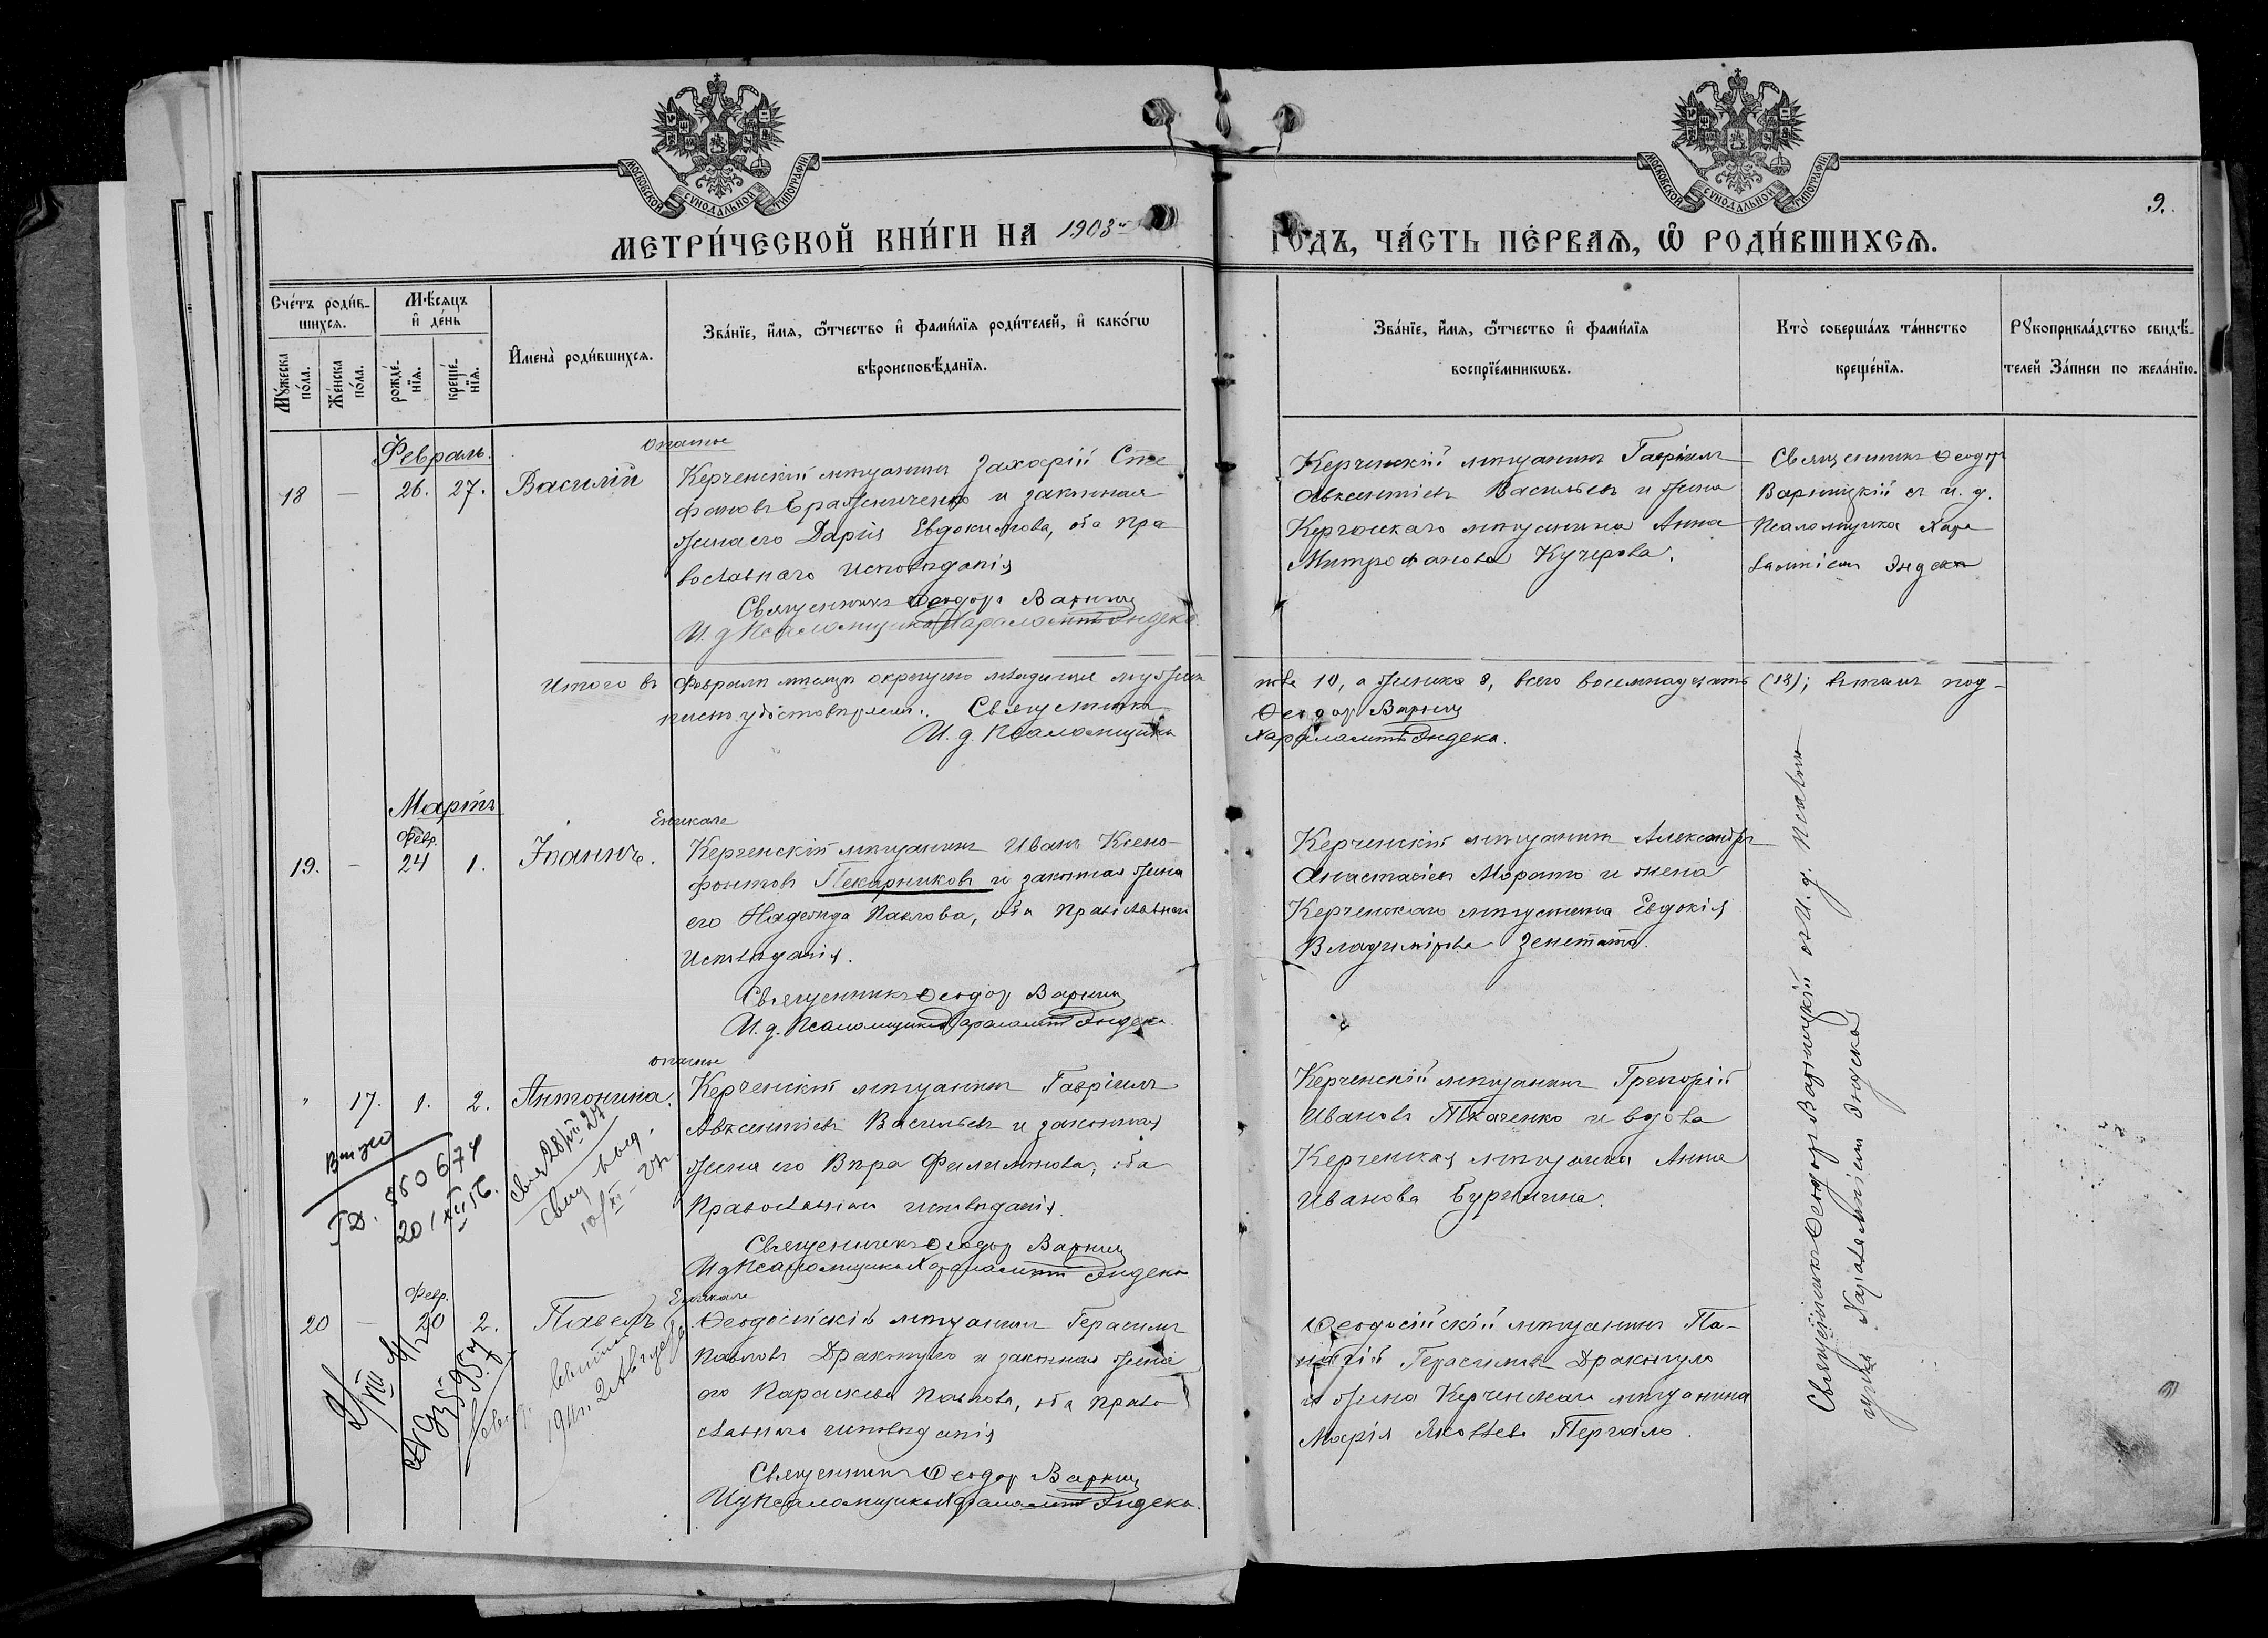 МОСКОВСКОЙ СѴНОДАЛЬНОЙ ТИПОГРАФІИ
МОСКОВСКОЙ СѴНОДАЛЬНОЙ ТИПОГРАФІИ
9.
МЕТРИ́ЧЕСКОЙ КНИ́ГИ НА 1903й
ГОДЪ, ЧА́СТЬ ПЕ́РВАѦ, Ѽ РОДИ́ВШИХСѦ.
Сче́тъ роди́в-
шихсѧ.
Мꙋ́жеска по́ла.
Же́нска по́ла.
Мѣ́сѧцъ
и҆ де́нь
рожде́-
нїѧ.
креще́-
нїѧ.
И҆мена̀ роди́вшихсѧ.
Зва́нїе, и҆́мѧ, ѻ҆́тчество и҆ фами́лїѧ роди́телей, и҆ како́гѡ
вѣроисповѣ́данїѧ.
Зва́нїе, и҆́мѧ, ѻ҆́тчество и҆ фами́лїѧ
воспрїе́мникѡвъ.
Кто̀ соверша́лъ та́инство
креще́нїѧ.
Рꙋкоприкла́дство свидѣ́-
телей За́писи по жела́нїю.
Февраль.
18 — 26. 27. Василій
Опасное
Керченскій мѣщанинъ Захарій Сте
фановъ Ераженченко и законная
жена его Дарія Евдокимова, оба пра
вославнаго исповѣданія
Священникъ Ѳеодоръ Варниц
И. д. Псаломщика Харалампій Эндека.
Керченскій мѣщанинъ Гавріилъ
Авксентіевъ Васильевъ и жена
Керченскаго мѣщанина Анна
Митрофанова Кучерова.
Священникъ Ѳеодоръ
Варницкій съ и. д.
Псаломщика Хара
лампіемъ Эндека
Итого въ Февралѣ мѣсяцѣ окрещено младенцевъ мужеска
пола 10, а женска 8, всего восемнадцать (18); въ томъ под-
писью удостовѣряемъ: Священникъ Ѳеодоръ Варниц
И. д. Псаломщика Харалампій Эндека.
Мартъ
Февр.
19. — 24 1. Іоаннъ.
Еникале
Керченскій мѣщанинъ Иванъ Ксено-
фонтовъ Пекарниковъ и законная жена
его Надежда Павлова, оба Православнаго
исповѣданія.
Священникъ Ѳеодоръ Варниц
И. д. Псаломщика Харалампій Эндека.
Керченскій мѣщанинъ Александръ
Анастасіевъ Морато и жена
Керченскаго мѣщанина Евдокія
Владимірова
Священникъ Ѳеодоръ Варницкій съ И. д. Псалом
щика Харалампіемъ Эндека
" 17. 1. 2. Антонина.
Опасное
Керченскій мѣщанинъ Гавріилъ
Авксентіевъ Васильевъ и законная
жена его Вѣра Филимонова, оба
Православнаго исповѣданія.
Священникъ Ѳеодоръ Варниц
И д Псаломщика Харалампій Эндека
Керченскій мѣщанинъ Григорій
Ивановъ Ткаченко и вдова
Керченская мѣщанка Анна
Иванова
550674
20/XII 56.
28/VII 27
10/XI – 27г.
Февр.
20 — 20 2. Павелъ
Еникале
Ѳеодосійскій мѣщанинъ Герасимъ
Павловъ Дракопуло и законная жена
его Параскева Павлова, оба Право
славнаго исповѣданія
Священникъ Ѳеодоръ Варниц
И д Псаломщика Харалампій Эндека.
Ѳеодосійскій мѣщанинъ Па-
Герасимовъ Дракопуло
и жена Керченскаго мѣщанина
Марія Яковлева Пергало.
1911г. 2 Августа